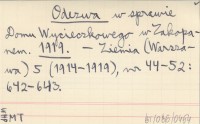 Odezwa w sprawie
Domu Wycieczkowego w Zakopa-
nem. 1919. – Ziemia (Warsza-
wa) 5 (1914-1919), nr 44-52:
642-643.
MT